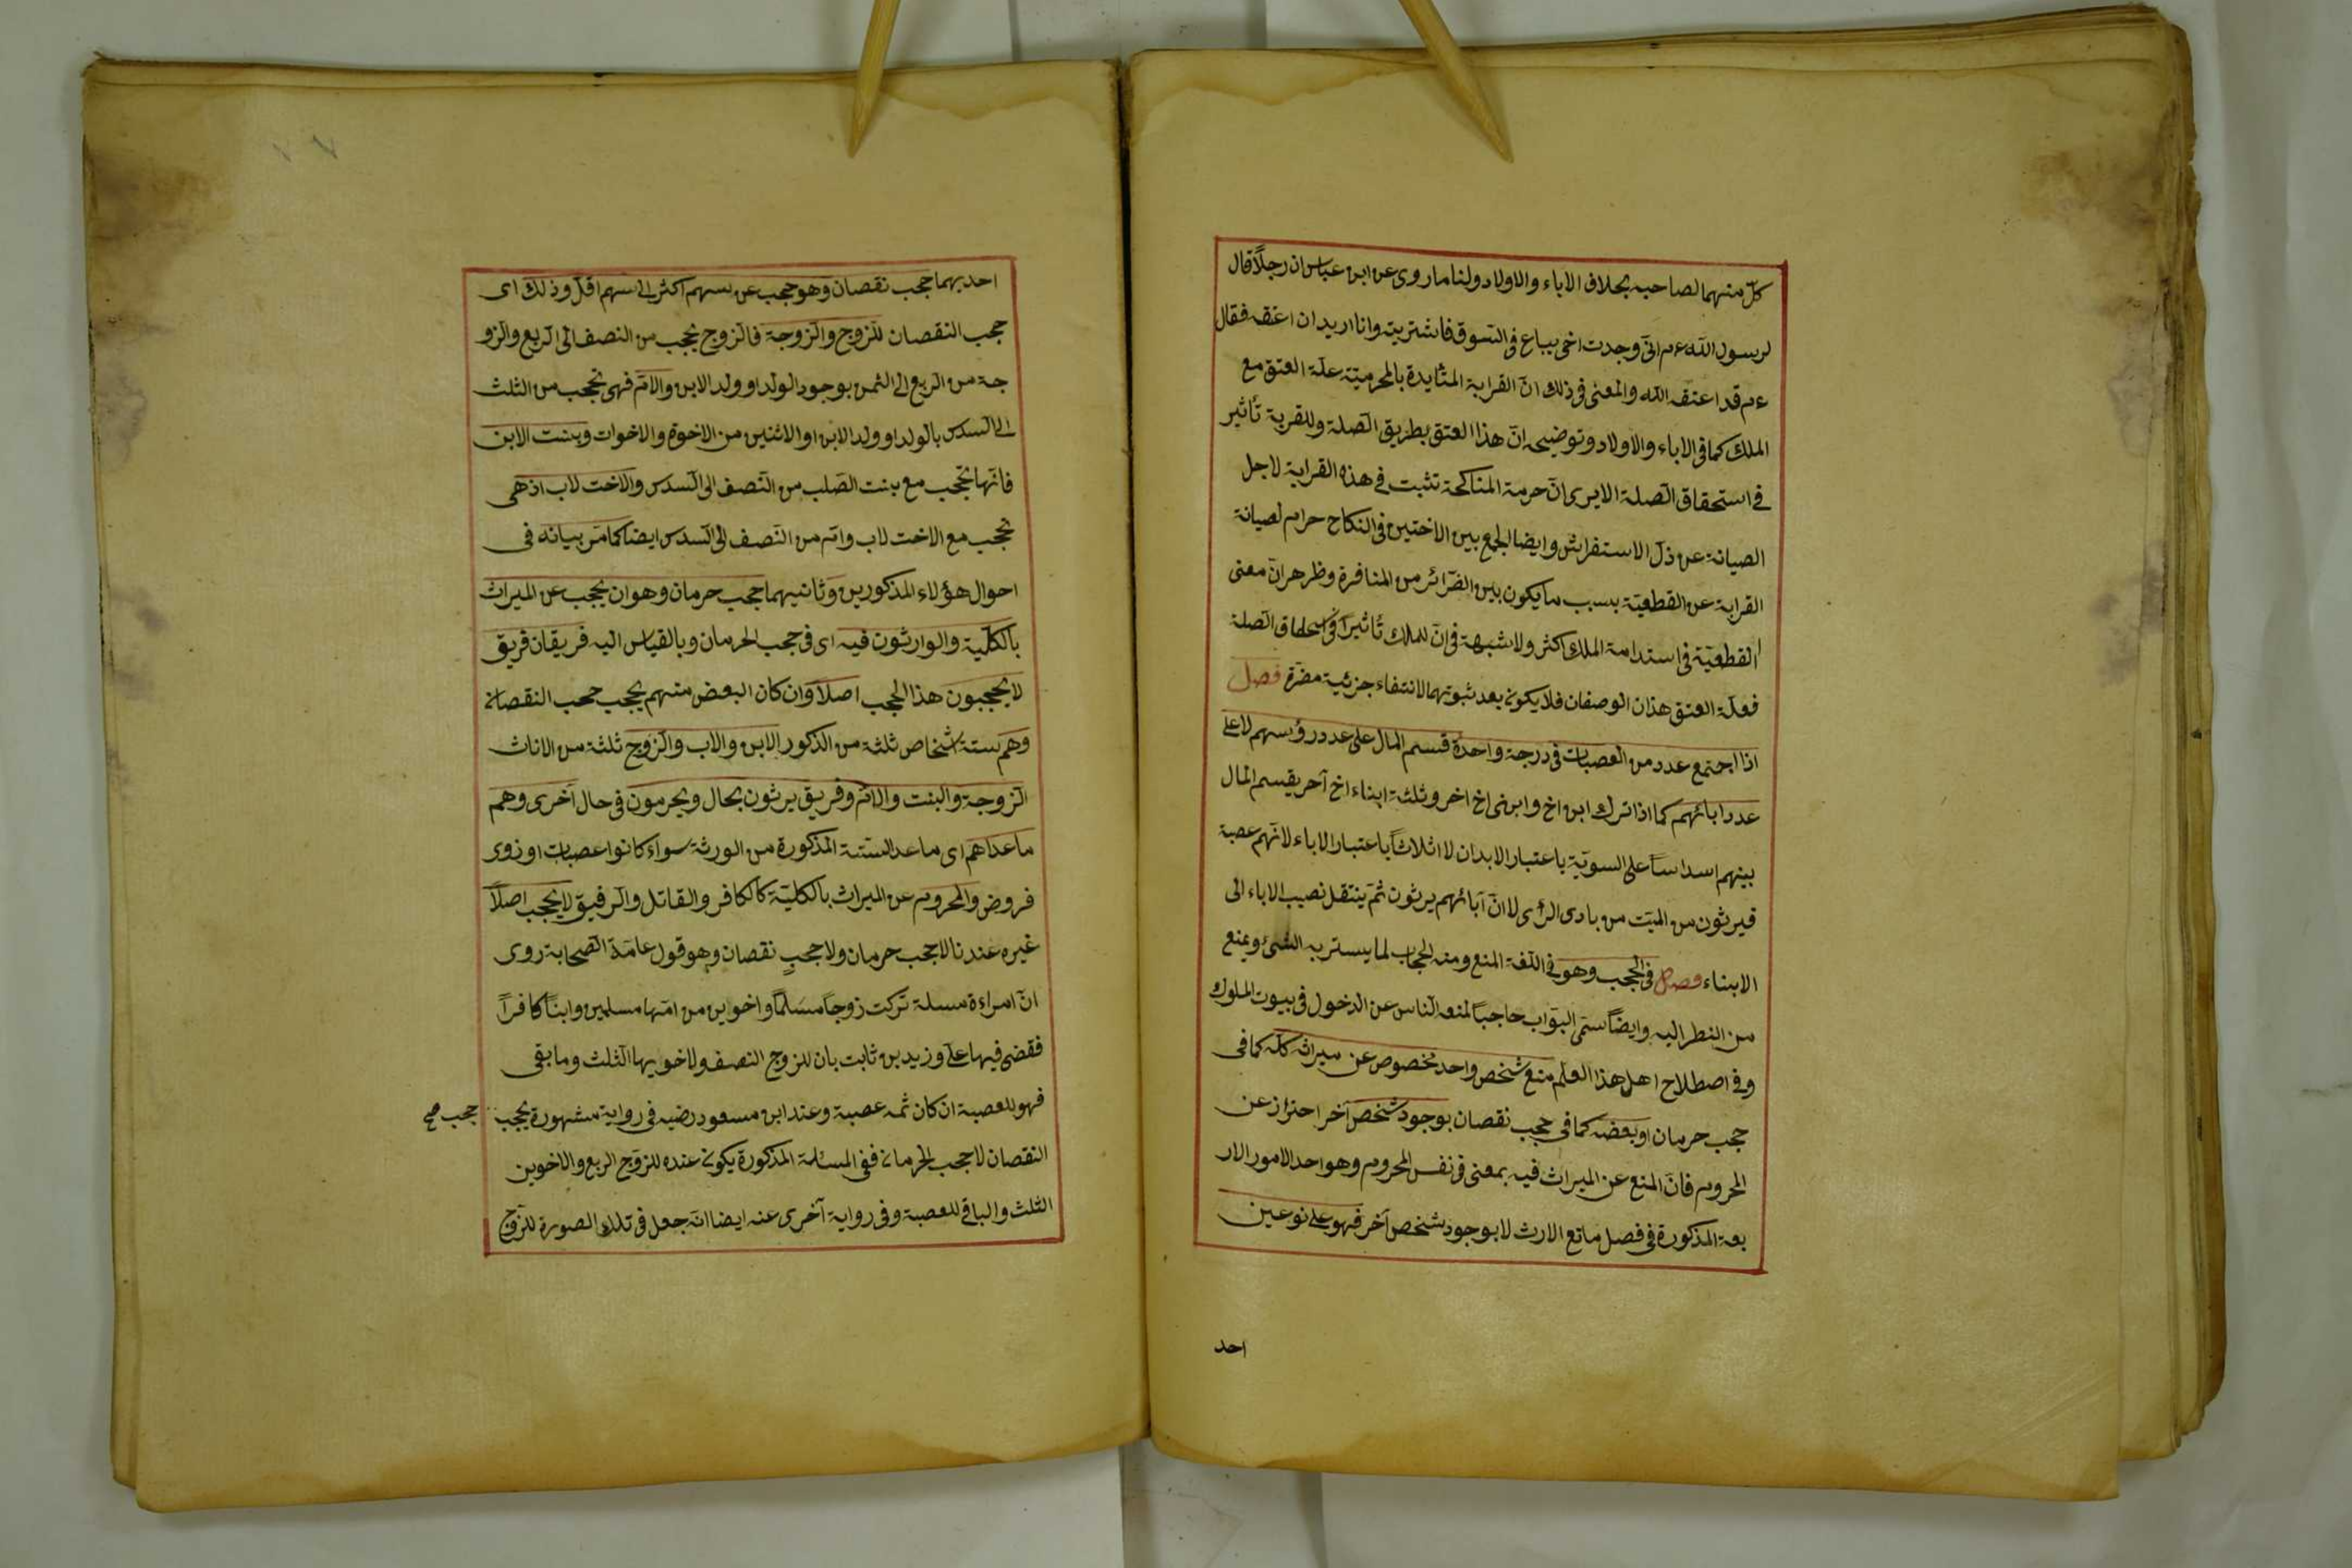 كلّ منهما لصاحبه بخلاف الاباء والاولاد ولنا ما روى عن ابن عباس ان رجلاً قال
لرسول الله ءم انّى وجدت اخى يباع فى السّوق فاشتريته وانا اريد ان اعتقه فقال
ءم قد اعتقه الله والمعنى فى ذلك انّ القرابة المتأيدة بالمحرميّة علّة العتق مع
الملك كما فى الاباء والاولاد وتوضيحه انّ هذا العتق بطريق الصّلة وللقربة تأثير
فى استحقاق الصّلة الا يرى انّ حرمة المناكحة تثبت فى هذه القرابة لاجل
الصيانة عن ذلّ الاستفراش وايضا الجمع بين الاختين فى النكاح حرام لصيانة
القرابة عن القطعيّة بسبب ما يكون بين الضّرائر من المنافرة وظهر هر انّ معنى
القطعيّة فى استدامة الملك اكثر ولا شبهة فى انّ للملك تأثيراً فى استحقاق الصّلة
فعلّة العتق هذان الوصفان فلا يكون بعد ثبوتهما لانتفاء جزئية مضرّة فصل
اذا اجتمع عدد من العصبات فى درجة واحدة قسم المال على عدد رؤسهم لا على
عدد ابائهم كما اذا ترك ابن اخ وابنى اخ اخر وثلثة ابناء اخ آخر يقسم المال
بينهم اسداساً على السويّة باعتبار الابدان لا اثلاثاً باعتبار الاباء لانّهم عصبة
فيرثون من الميّت من بادى الرأى لا انّ آبائهم يرثون ثمّ ينتقل نصيب الاباء الى
الابناء فصل فى الحجب وهو فى اللّغة المنع ومنه الحجاب لما يستر به الشئ ويمنع
من النظر اليه وايضاً سمّى البوّاب حاجباً لمنعه النّاس عن الدخول فى بيوت الملوك
وفى اصطلاح اهل هذا العلم منع شخص واحد مخصوص عن ميراثه كلّه كما فى
حجب حرمان او بعضه كما فى حجب نقصان بوجود شخص آخر احتراز عن
المحروم فانّ المنع عن الميراث فيه بمعنى فى نفس المحروم وهو احد الامور الار
بعة المذكورة فى فصل مانع الارث لا بوجود شخص آخر فهو على نوعين
احد
احد بهما حجب نقصان وهو حجب عن سهم اكثر الى سهم اقلّ وذلك اى
حجب النقصان للزوج والزوجة فالزوج يحجب من النصف الى الربع والزو
جة من الربع الى الثمن بوجود الولد او ولد الابن والامّ فهى تحجب من الثلث
الى السدس بالولد او ولد الابن او الاثنين من الاخوة والاخوات وبنت الابن
فانّها تحجب مع بنت الصّلب من النّصف الى السّدس والاخت لاب اذ هى
تحجب مع الاخت لاب وامّ من النّصف الى السّدس ايضا كما مرّ بيانه فى
احوال هؤلاء المذكورين وثانيهما حجب حرمان وهو ان يحجب عن الميراث
بالكلّية والوارثون فيه اى فى حجب الحرمان وبالقياس اليه فريقان فريق
لا يحجبون هذا الحجب اصلاً وان كان البعض منهم يحجب حجب النقصان
وهم ستة اشخاص ثلثة من الذكور الابن والاب والزّوج ثلثة من الاناث
الزوجة والبنت والامّ وفريق يرثون بحال ويحرمون فى حال اخرى وهم
ما عداهم اى ما عدا السّتة المذكورة من الورثة سواء كانوا عصبات او زوى
فروض والمحروم عن الميراث بالكليّة كالكافر والقاتل والرّقيق لا يحجب اصلاً
غيره عندنا لا حجب حرمان ولا حجبٍ نقصان وهو قول عامّة الصّحابة روى
انّ امراءة مسلة تركت زوجاً مسلماً واخوين من امّها مسلمين وابناً كافراً
فقضى فيها علىّ وزيد بن ثابت بان للزوج النصف ولاخويها الثلث وما بقى
فهو للعصبة ان كان ثمه عصبة وعند ابن مسعود رضيه فى رواية مشهورة يحجب
حجب صح
النقصان لا حجب الحرمان ففى المسئلة المذكورة يكون عنده للزّوج الربع والاخوين
الثلث والباقى للعصبة وفى رواية اخرى عنه ايضا انّه جعل فى تلك الصورة للزّوج